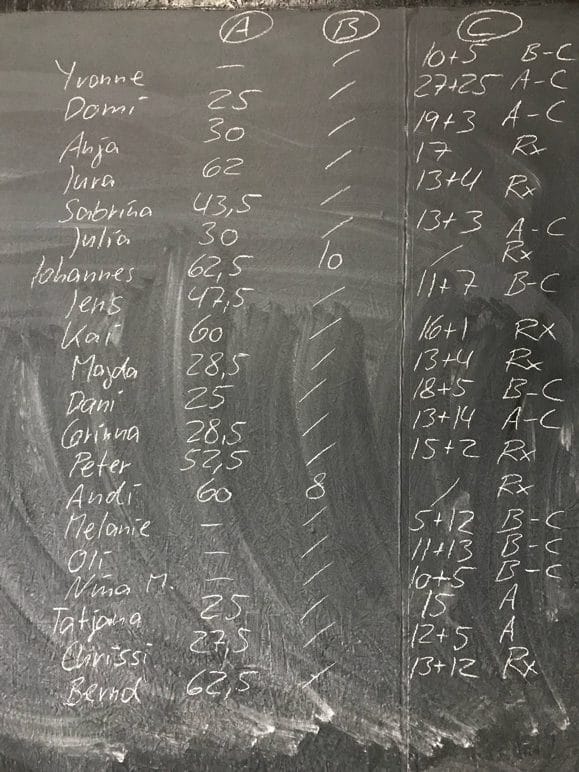 A B C
Yvonne — / 10+5 B-C
Domi 25 / 27+25 A-C
Anja 30 / 19+3 A-C
Jura 62 / 17 Rx
Sabrina 43,5 / 13+4 Rx
Julia 30 / 13+3 A-C
Johannes 62,5 10 / Rx
Jens 47,5 / 11+7 B-C
Kai 60 / 16+1 Rx
Magda 28,5 / 13+4 Rx
Dani 25 / 18+5 B-C
Corinna 28,5 / 13+14 A-C
Peter 52,5 / 15+2 Rx
Andi 60 8 / Rx
Melanie — / 5+12 B-C
Oli — / 11+13 B-C
Nina M. — / 10+5 B-C
Tatjana 25 / 15 A
Chrissi 27,5 / 12+5 A
Bernd 62,5 / 13+12 Rx